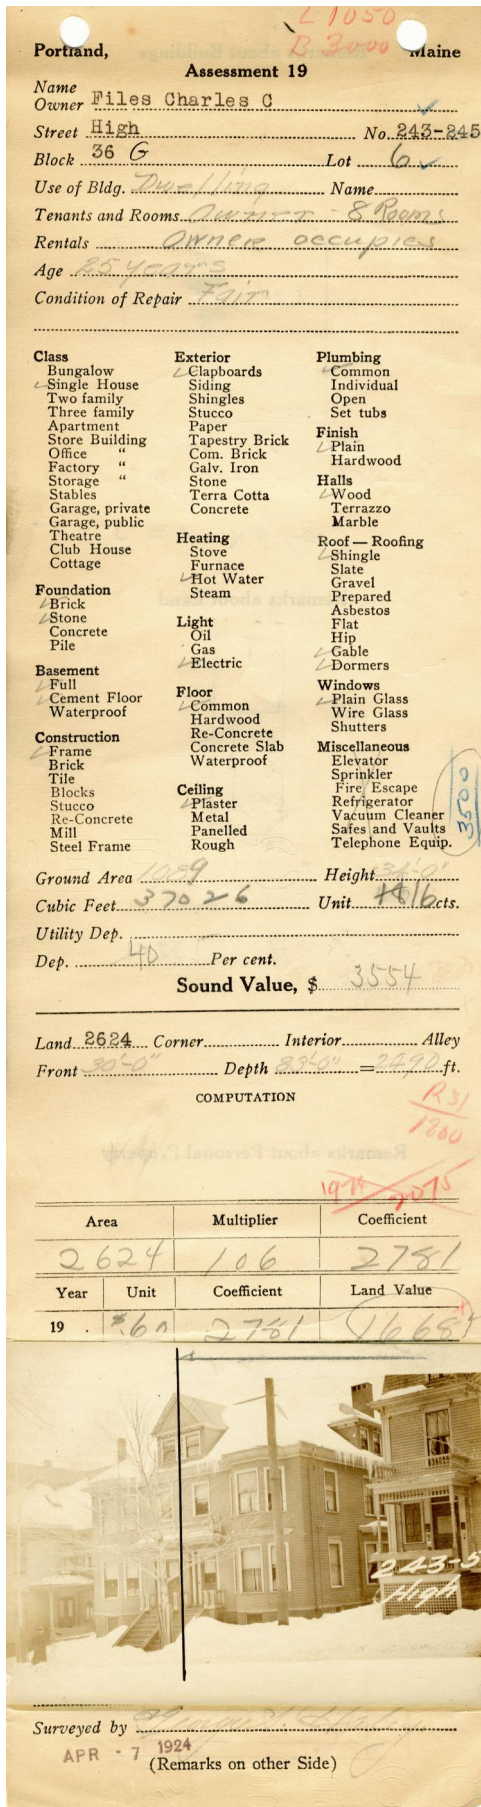 L 1050
B 3000
Portland, Maine
Assessment 19
Name
Owner Files Charles C
Street High No. 243-245
Block 36 G Lot 6
Use of Bldg. Dwelling Name
Tenants and Rooms Owner - 8 Rooms
Rentals Owner occupies
Age 25 years
Condition of Repair Fair
Class
Bungalow
Single House
Two family
Three family
Apartment
Store Building
Office "
Factory "
Storage "
Stables
Garage, private
Garage, public
Theatre
Club House
Cottage
Foundation
Brick
Stone
Concrete
Pile
Basement
Full
Cement Floor
Waterproof
Construction
Frame
Brick
Tile
Blocks
Stucco
Re-Concrete
Mill
Steel Frame
Exterior
Clapboards
Siding
Shingles
Stucco
Paper
Tapestry Brick
Com. Brick
Galv. Iron
Stone
Terra Cotta
Concrete
Heating
Stove
Furnace
Hot Water
Steam
Light
Oil
Gas
Electric
Floor
Common
Hardwood
Re-Concrete
Concrete Slab
Waterproof
Ceiling
Plaster
Metal
Panelled
Rough
Plumbing
Common
Individual
Open
Set tubs
Finish
Plain
Hardwood
Halls
Wood
Terrazzo
Marble
Roof — Roofing
Shingle
Slate
Gravel
Prepared
Asbestos
Flat
Hip
Gable
Dormers
Windows
Plain Glass
Wire Glass
Shutters
Miscellaneous
Elevator
Sprinkler
Fire Escape
Refrigerator
Vacuum Cleaner
Safes and Vaults
Telephone Equip.
3500
Ground Area 1089 Height 34'-0"
Cubic Feet 37026 Unit 16 cts.
Utility Dep.
Dep. 40 Per cent.
Sound Value, $ 3554
Land 2624 Corner Interior Alley
Front 30'-0" Depth 83'-0" = 2490 ft.
COMPUTATION
R 31
1800
2075
Area Multiplier Coefficient
2624 106 2781
Year Unit Coefficient Land Value
19 . $.60 2781 1668
243-5
High
Surveyed by
APR - 7 1924
(Remarks on other Side)